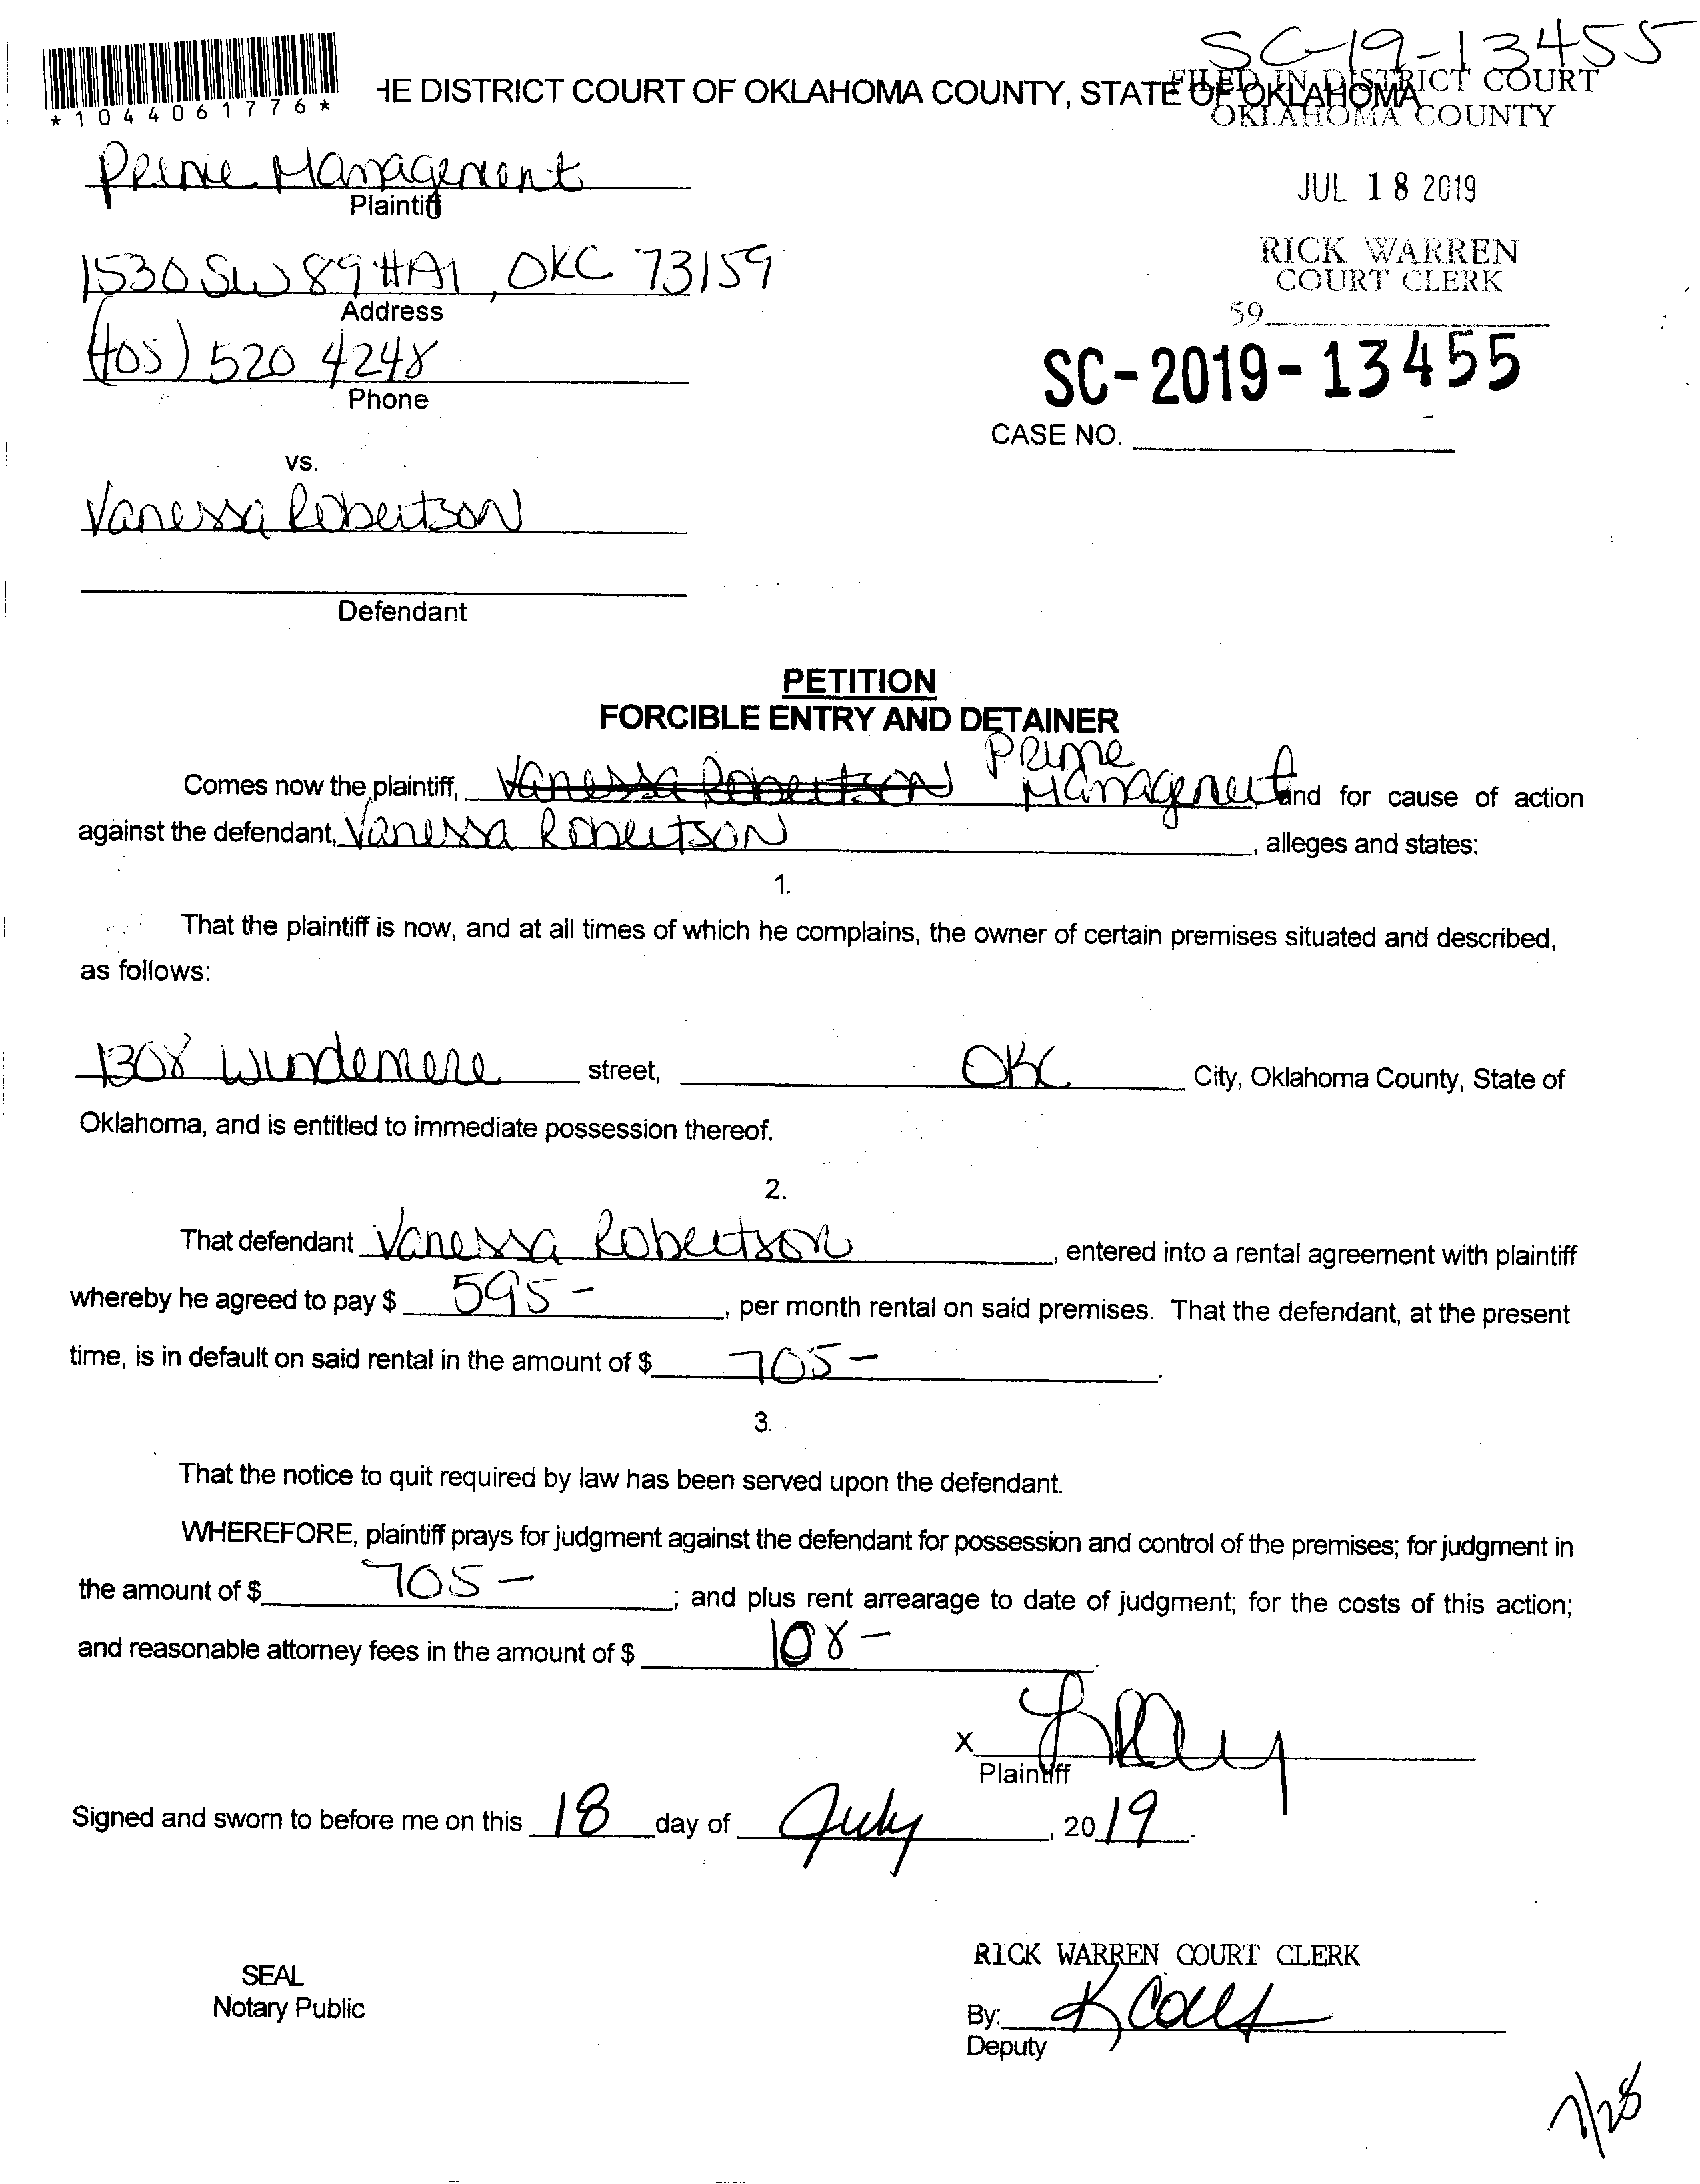 SC-19-13455
HE DISTRICT COURT OF OKLAHOMA COUNTY, STATE OF OKLAHOMA
FILED IN DISTRICT COURT
OKLAHOMA COUNTY
*1044061776*
Prime Management
Plaintiff
JUL 18 2019
1530 SW 89 #A1, OKC 73159
Address
RICK WARREN
COURT CLERK
59
(405) 520 4248
Phone
SC-2019-13455
CASE NO.
vs.
Vanessa Robertson
Defendant
PETITION
FORCIBLE ENTRY AND DETAINER
Comes now the plaintiff, Vanessa Robertson Prime Management and for cause of action
against the defendant, Vanessa Robertson, alleges and states:
1.
That the plaintiff is now, and at all times of which he complains, the owner of certain premises situated and described,
as follows:
1308 Windemere street, OKC City, Oklahoma County, State of
Oklahoma, and is entitled to immediate possession thereof.
2.
That defendant Vanessa Robertson, entered into a rental agreement with plaintiff
whereby he agreed to pay $ 595-, per month rental on said premises. That the defendant, at the present
time, is in default on said rental in the amount of $ 705-.
3.
That the notice to quit required by law has been served upon the defendant.
WHEREFORE, plaintiff prays for judgment against the defendant for possession and control of the premises; for judgment in
the amount of $ 705-; and plus rent arrearage to date of judgment; for the costs of this action;
and reasonable attorney fees in the amount of $ 108-
X
Plaintiff
Signed and sworn to before me on this 18 day of July, 2019.
RICK WARREN COURT CLERK
SEAL
Notary Public
By:
Deputy
7/28